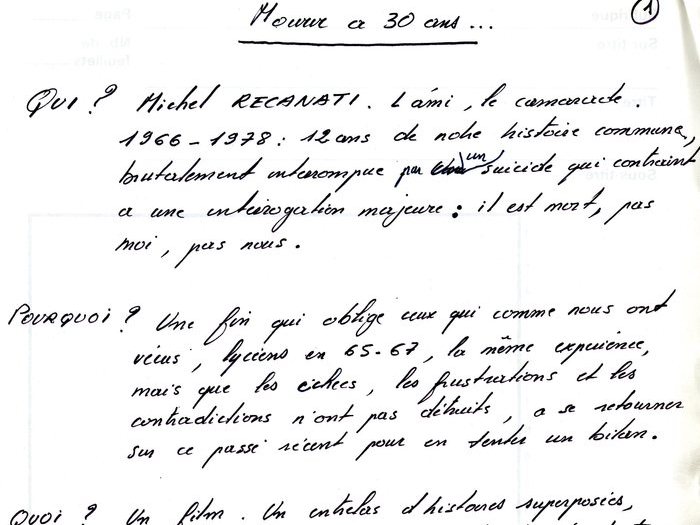 1
Mourir a 30 ans...
QUI ? Michel RECANATI. L'ami, le camarade.
1966-1978 : 12 ans de notre histoire commune,
brutalement interrompue par un suicide qui contraint
a une interrogation majeure : il est mort, pas
moi, pas nous.
POURQUOI ? Une fin qui oblige ceux qui comme nous ont
vécus, lycéens en 65-67, la même expérience,
mais que les échecs, les frustrations et les
contradictions n'ont pas détruits, a se retourner
sur ce passé récent pour en tenter un bilan.
QUOI ? Un film. Un entrelas d'histoires superposées,